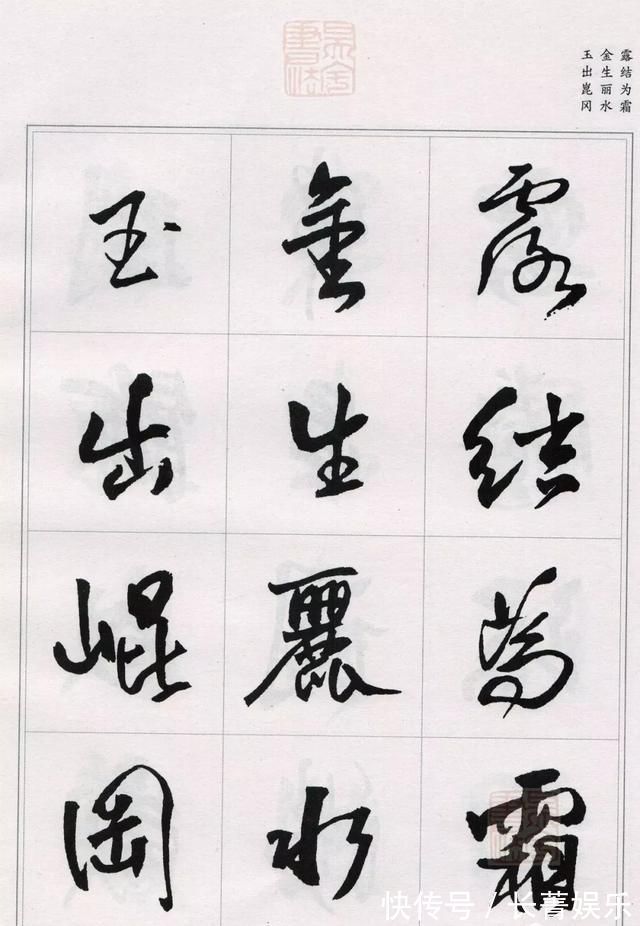 露结为霜
金生丽水
玉出崑冈
露結為霜
金生麗水
玉出崐岡
快传号／长菁娱乐